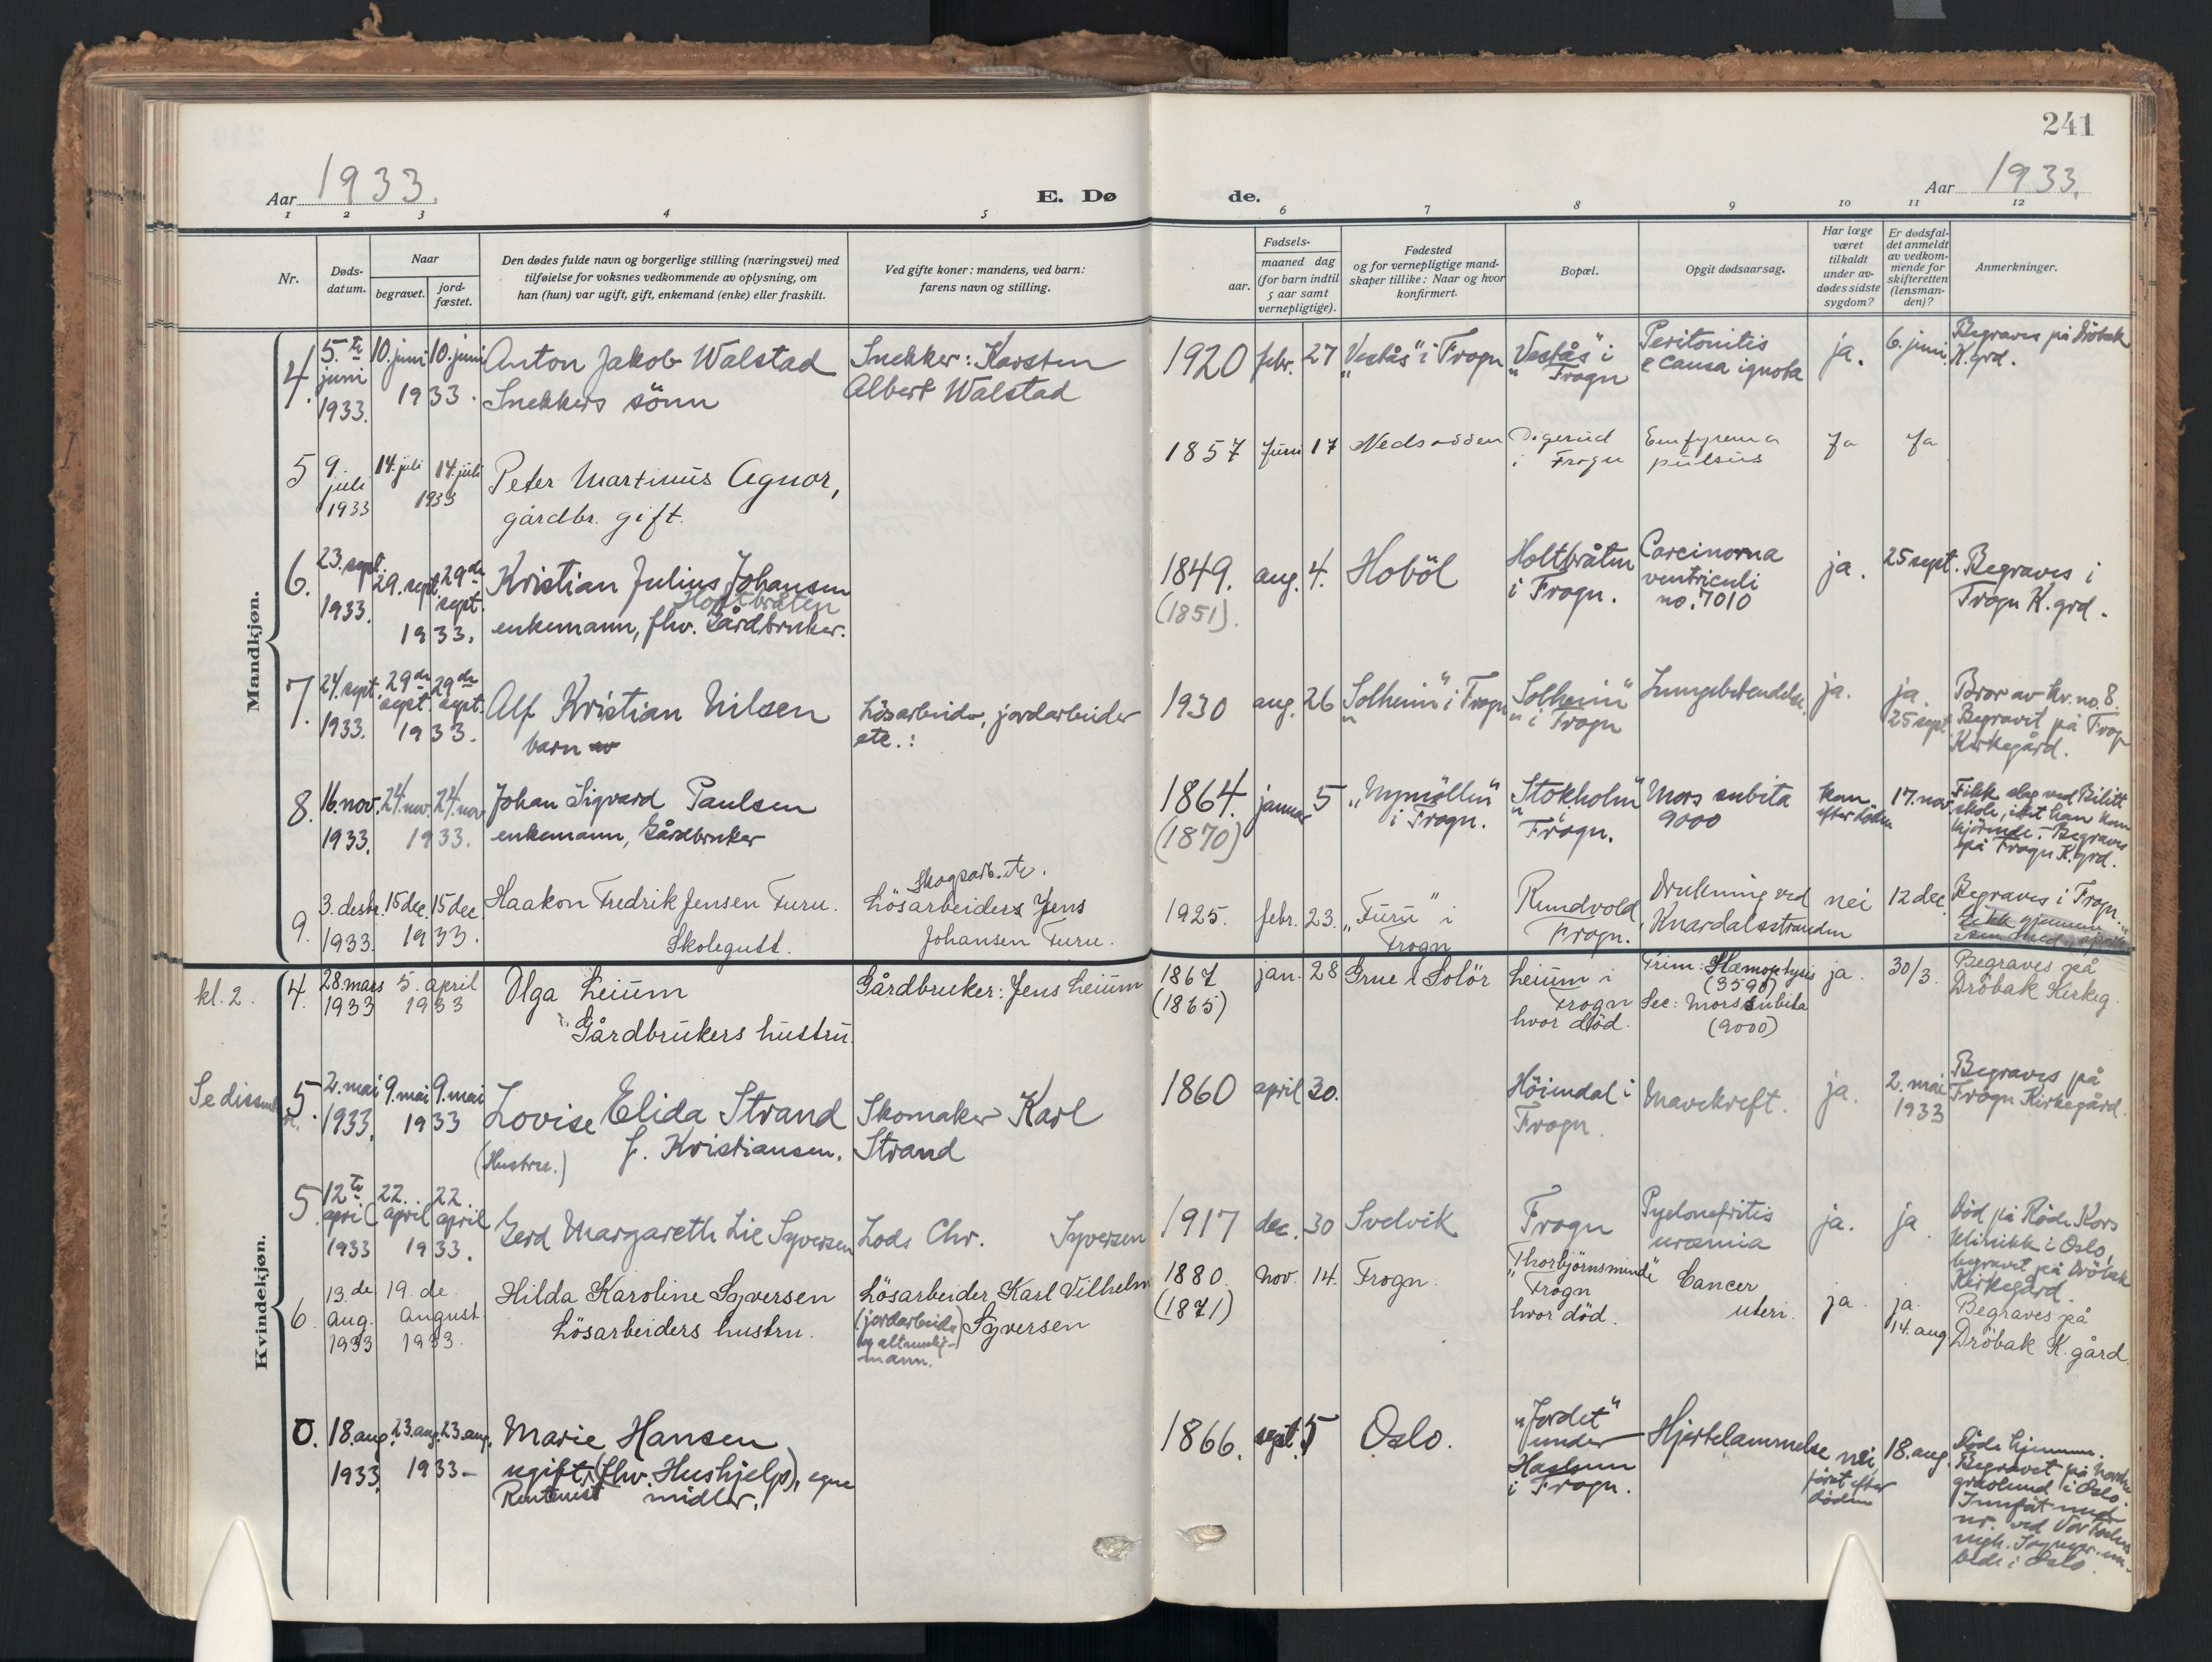 241
Aar 1933. E. Dø de. Aar 1933.
1 2 3 4 5 6 7 8 9 10 11 12
Nr.
Døds-
datum.
Naar
begravet.
jord-
fæstet.
Den dødes fulde navn og borgerlige stilling (næringsvei) med
tilføielse for voksnes vedkommende av oplysning, om
han (hun) var ugift, gift, enkemand (enke) eller fraskilt.
Ved gifte koner: mandens, ved barn:
farens navn og stilling.
Fødsels-
aar.
maaned dag
(for barn indtil
5 aar samt
vernepligtige).
Fødested
og for vernepligtige mand-
skaper tillike: Naar og hvor
konfirmert.
Bopæl.
Opgit dødsaarsag.
Har læge
været
tilkaldt
under av-
dødes sidste
sygdom?
Er dødsfal-
det anmeldt
av vedkom-
mende for
skifteretten
(lensman-
den)?
Anmerkninger.
Mandkjøn.
4.
5.te
juni
1933.
10. juni 10. juni
1933.
Anton Jakob Walstad
Snekkers sönn
Snekker: Karsten
Albert Walstad
1920 febr. 27
"Vestås" i Frogn
"Vestås" i
Frogn
Peritonitis
e causa ignota
ja.
6. juni
Begraves på Dröbak
K.grd.
5
9.
juli
1933
14. juli 14. juli
1933
Peter Martinus Agnor,
gårdbr. gift.
1857 Juni 17
Nedsodden
Digerud
i Frogn
Emfysema
pulsus
Ja
Ja
6.
23. sept.
1933.
29. sept. 29de
sept.
1933.
Kristian Julius Johansen
Holtbråten
enkemann, fhv. Gårdbruker.
1849. aug. 4.
(1851).
Hoböl
Holtbråten
i Frogn.
Carcinoma
ventriculi
no. 7010
ja.
25 sept.
Begraves i
Frogn K.grd.
7.
24. sept.
1933.
29de 29de
sept. sept.
1933.
Alf Kristian Nilsen
barn av
Lösarbeider, jordarbeider
etc.:
1930 aug. 26
"Solheim" i Frogn
"Solheim"
i Frogn
Lungebetendelse.
ja.
ja.
25 sept.
Bror av kv. no. 8.
Begravet på Frogn
Kirkegård.
8.
16. nov.
1933.
24. nov. 24. nov
1933.
Johan Sigvard Paulsen
enkemann, Gårdbruker
1864. januar 5
(1870)
"Nymöllen"
i Frogn.
"Stokholm"
Frogn.
Mors subita
9000
kun
efter döden
17. nov.
Fikk slag ved Bilitt
skole, idet han kom
kjörende. - Begraves
på Frogn K.grd.
9.
3. desbr.
1933.
15 dec. 15 dec.
1933.
Haakon Fredrik Jensen Furu.
Skolegutt.
Skogsarb. etc.
Lösarbeiders Jens
Johansen Furu.
1925. febr. 23.
"Furu" i
Frogn
Rundvold
Frogn.
Drukning ved
Knardalsstranden
nei
12 dec.
Begraves i Frogn.
Gikk gjennem
isen med
Kvindekjøn.
kl. 2.
4.
28. mars
1933
5. april
1933
Olga Leium
Gårdbrukers hustru.
Gårdbruker: Jens Leium
1867 jan. 28
(1865)
Grue i Solör
Leium i
Frogn
hvor död.
Prim: Hæmoptysis
(3590)
Sec: Mors subita
(9000)
ja
30/3.
Begraves på
Dröbak Kirkeg.
5.
2. mai
1933.
9. mai 9. mai
1933
Lovise Elida Strand
f. Kristiansen.
(Hustru.)
Skomaker Karl
Strand
1860 april 30.
Höimdal i
Frogn.
Mavekreft.
ja.
2. mai
1933
Begraves på
Frogn Kirkegård.
5.
12te
april
1933
22. 22.
april april
1933.
Gerd Margareth Lie Syversen
Lods Chr. Syversen
1917 dec. 30
Svelvik
Frogn
Pyelonefritis
uræmia
ja.
ja.
Död på Röde Kors
Klinikk i Oslo,
begravet på Dröbak
Kirkegård.
6.
13. de
aug.
1933
19. de
august
1933.
Hilda Karoline Syversen
Lösarbeiders hustru.
Lösarbeider Karl Vilhelm
(jordarbeider Syversen
og altmulig-)
mann.
1880. nov. 14.
(1871)
Frogn.
"Thorbjörnsminde"
Frogn
hvor död.
Cancer
uteri.
ja
ja.
14. aug
Begraves på
Dröbak K.gård.
0.
18. aug.
1933.
23. aug. 23. aug.
1933 -
Marie Hansen
ugift, (fhv. Hushjelp), egne
Rentenist midler.
1866. sept. 5
Oslo.
"Jordet"
under
i Frogn.
Hjertelammelse
nei
först efter
döden
18. aug.
Döde hjemme.
Begravet på Nordre
gravlund i Oslo.
Innfört med
nr. ved Vor Frelsers
i Oslo.